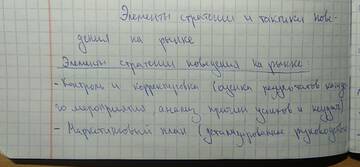 Элементы стратегии и тактики пове-
дения на рынке
Элементы стратегии поведения на рынке
- Контроль и корректировка (оценка результатов каждо
го мероприятия анализ причин успехов и неудач)
- Маркетинговый план (детализирование руководст